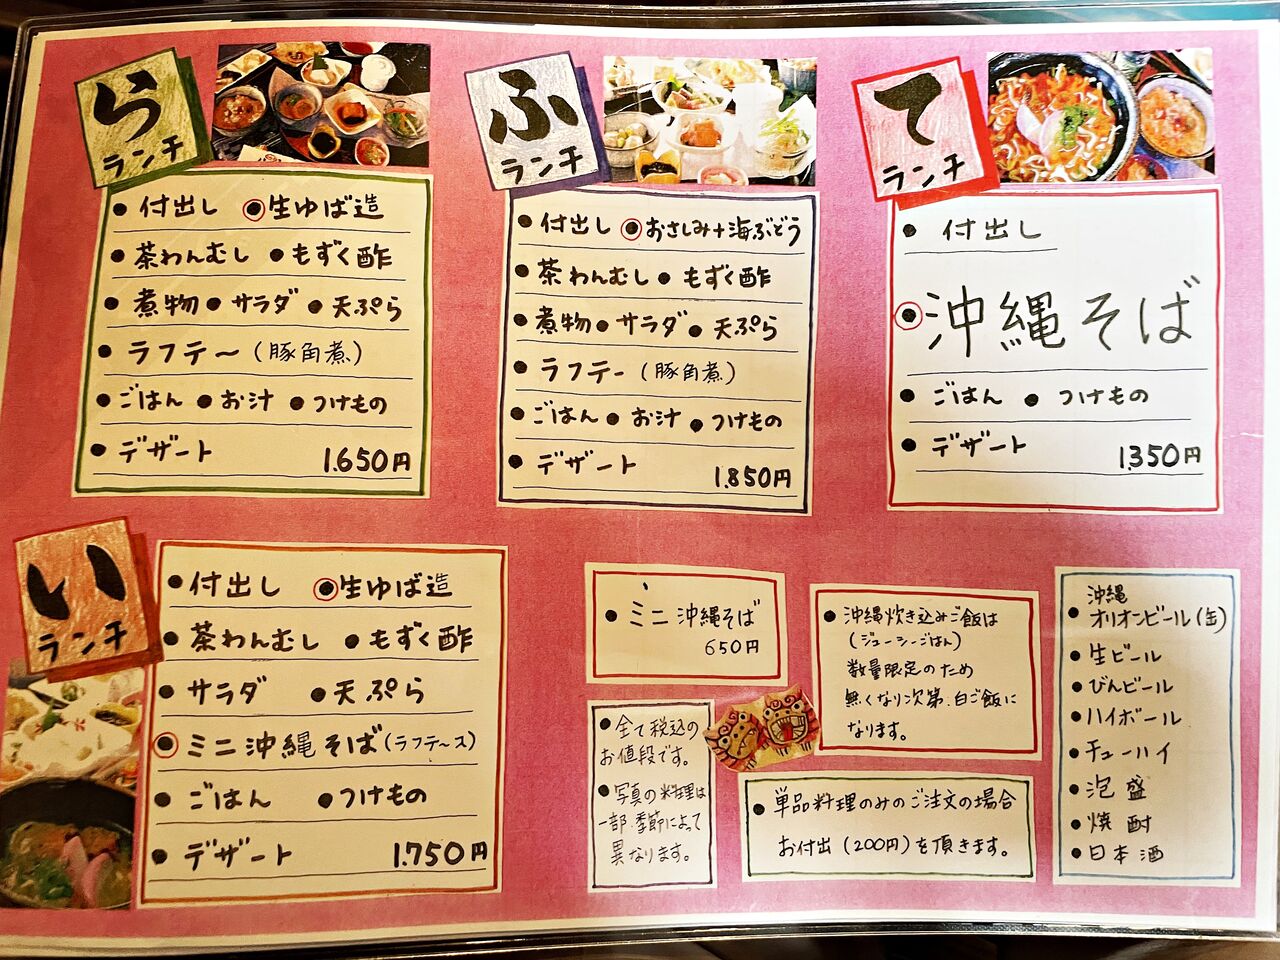 ら
ランチ
● 付出し ◉生ゆば造
● 茶わんむし ● もずく酢
● 煮物 ● サラダ ● 天ぷら
● ラフテ〜(豚角煮)
● ごはん ● お汁 ● つけもの
● デザート 1.650円
ふ
ランチ
● 付出し ◉おさしみ+海ぶどう
● 茶わんむし ● もずく酢
● 煮物 ● サラダ ● 天ぷら
● ラフテー(豚角煮)
● ごはん ● お汁 ● つけもの
● デザート 1.850円
て
ランチ
● 付出し
◉沖縄そば
● ごはん ● つけもの
● デザート 1.350円
い
ランチ
● 付出し ◉生ゆば造
● 茶わんむし ● もずく酢
● サラダ ● 天ぷら
◉ミニ沖縄そば(ラフテ〜ス)
● ごはん ● つけもの
● デザート 1.750円
● ミニ沖縄そば
650円
● 全て税込の
お値段です。
● 写真の料理は
一部.季節によって
異なります。
● 沖縄炊き込みご飯は
(ジューシーごはん)
数量限定のため
無くなり次第.白ご飯に
なります。
● 単品料理のみのご注文の場合
お付出(200円)を頂きます。
沖縄
● オリオンビール(缶)
● 生ビール
● びんビール
● ハイボール
● チューハイ
● 泡盛
● 焼酎
● 日本酒